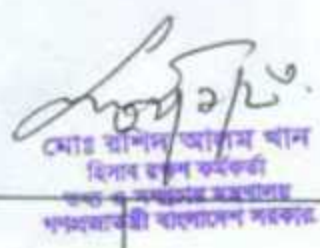 মোঃ রাশিদ আলম খান
হিসাব রক্ষণ কর্মকর্তা
তথ্য ও সম্প্রচার মন্ত্রণালয়
গণপ্রজাতন্ত্রী বাংলাদেশ সরকার